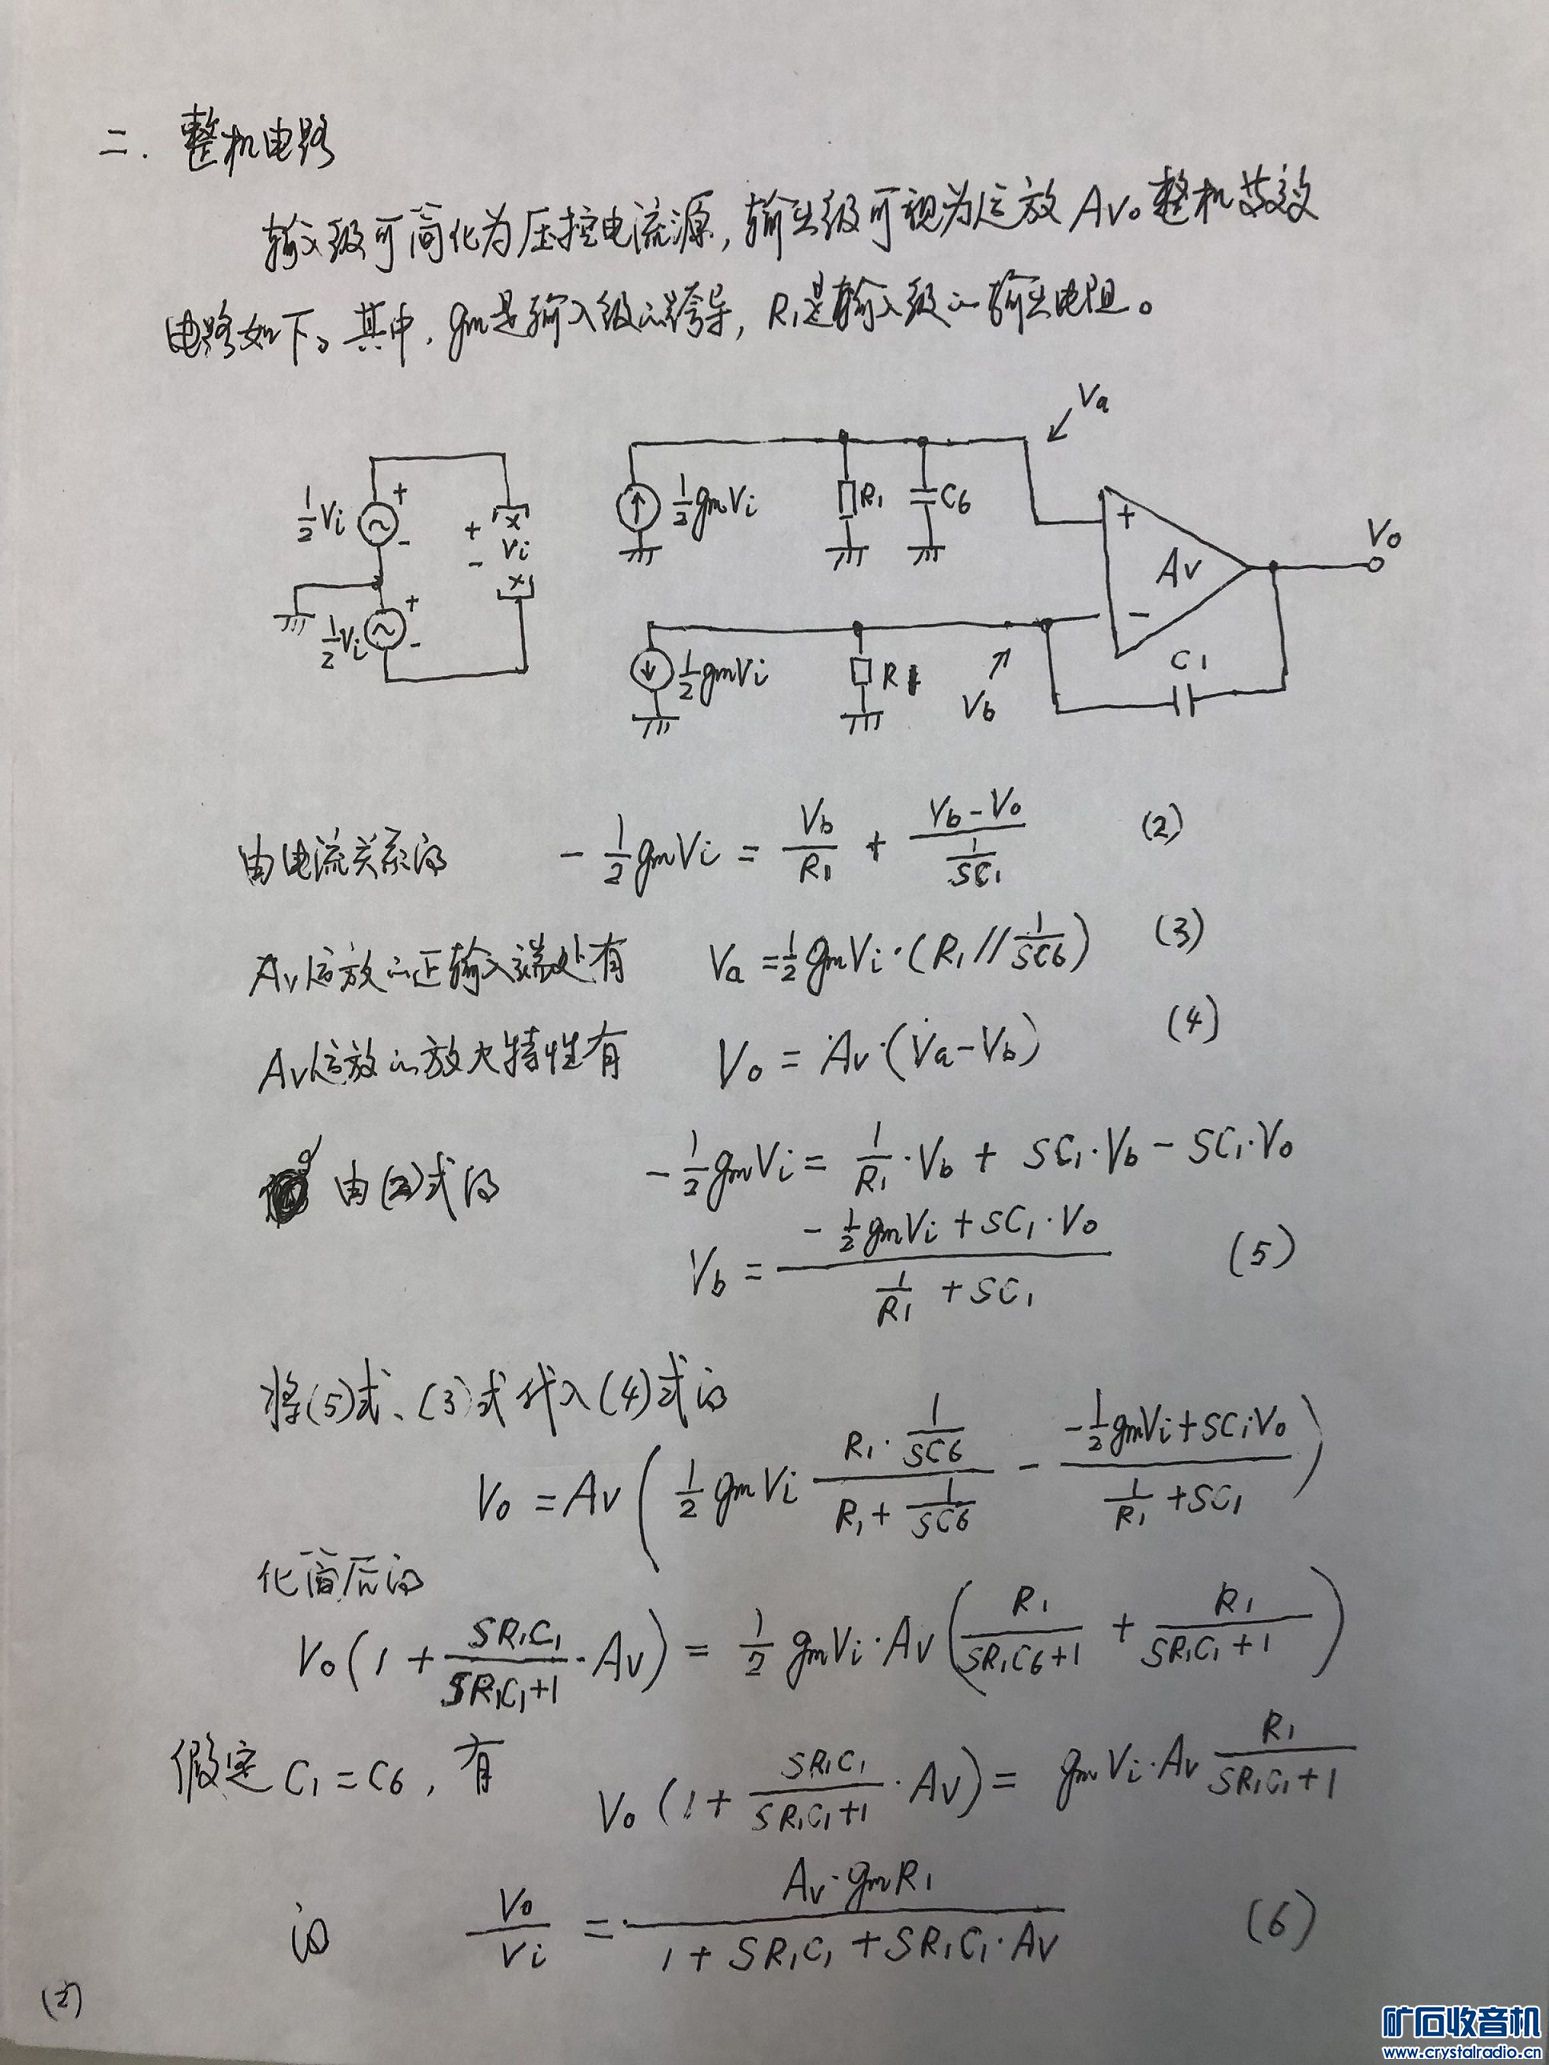 二. 整机电路
输入级可简化为压控电流源,输出级可视为运放Av。整机等效
电路如下。其中,gm是输入级的跨导,R1是输入级的输出电阻。
Va
½Vi + -
+ Vi -
½gmVi R1 C6
+ Av - Vo
½Vi + -
½gmVi R1 Vb C1
由电流关系得 -½gmVi = Vb/R1 + (Vb-Vo)/(1/SC1) (2)
Av运放的正输入端处有 Va=½gmVi·(R1//1/SC6) (3)
Av运放的放大特性有 Vo = Av·(Va-Vb) (4)
由(2)式得 -½gmVi = 1/R1·Vb + SC1·Vb - SC1·Vo
Vb = (-½gmVi+SC1·Vo)/(1/R1 + SC1) (5)
将(5)式、(3)式代入(4)式得
Vo = Av(½gmVi (R1·1/SC6)/(R1+1/SC6) - (-½gmVi+SC1Vo)/(1/R1+SC1))
化简后得
Vo(1+SR1C1/(SR1C1+1)·Av) = ½gmVi·Av(R1/(SR1C6+1) + R1/(SR1C1+1))
假定C1=C6,有 Vo(1+SR1C1/(SR1C1+1)·Av) = gmVi·Av R1/(SR1C1+1)
得 Vo/Vi = Av·gmR1/(1+SR1C1+SR1C1·Av) (6)
(2)
矿石收音机
www.crystalradio.cn